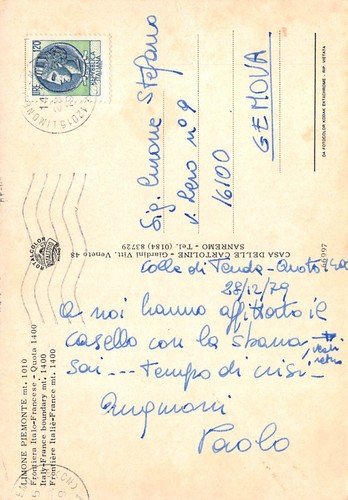 LIMONE PIEMONTE mt. 1010
Frontiera Italo-Francese - Quota 1400
Italy-France boundary mt. 1400
Frontière Italie-France mt. 1400
Colle di Tenda - Quota
28/12/79
A noi hanno affittato il
casello con la sbarra →
vedi
retro
sai --- tempo di crisi -
Auguroni
Paolo
CASA DELLE CARTOLINE - Giardini Vitt. Veneto 48
SANREMO - Tel. (0184) 83729
LIRE 120
REPUBBLICA
ITALIANA
Sig. Stefano
v. n° 9
16100
GENOVA
DA FOTOCOLOR KODAK EKTACHROME - RIP. VIETATA